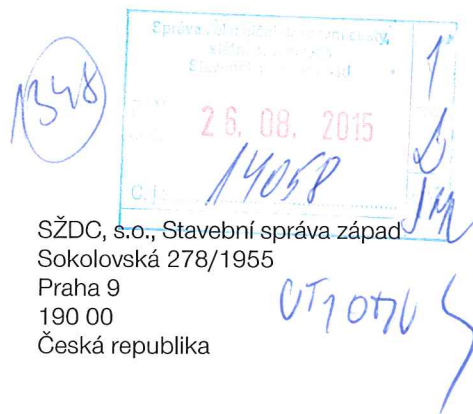 1348
Správa železniční dopravní cesty,
státní organizace
Stavební správa západ
1
26. 08. 2015
Č. j.: 14058
SŽDC, s.o., Stavební správa západ
Sokolovská 278/1955
Praha 9
190 00
Česká republika